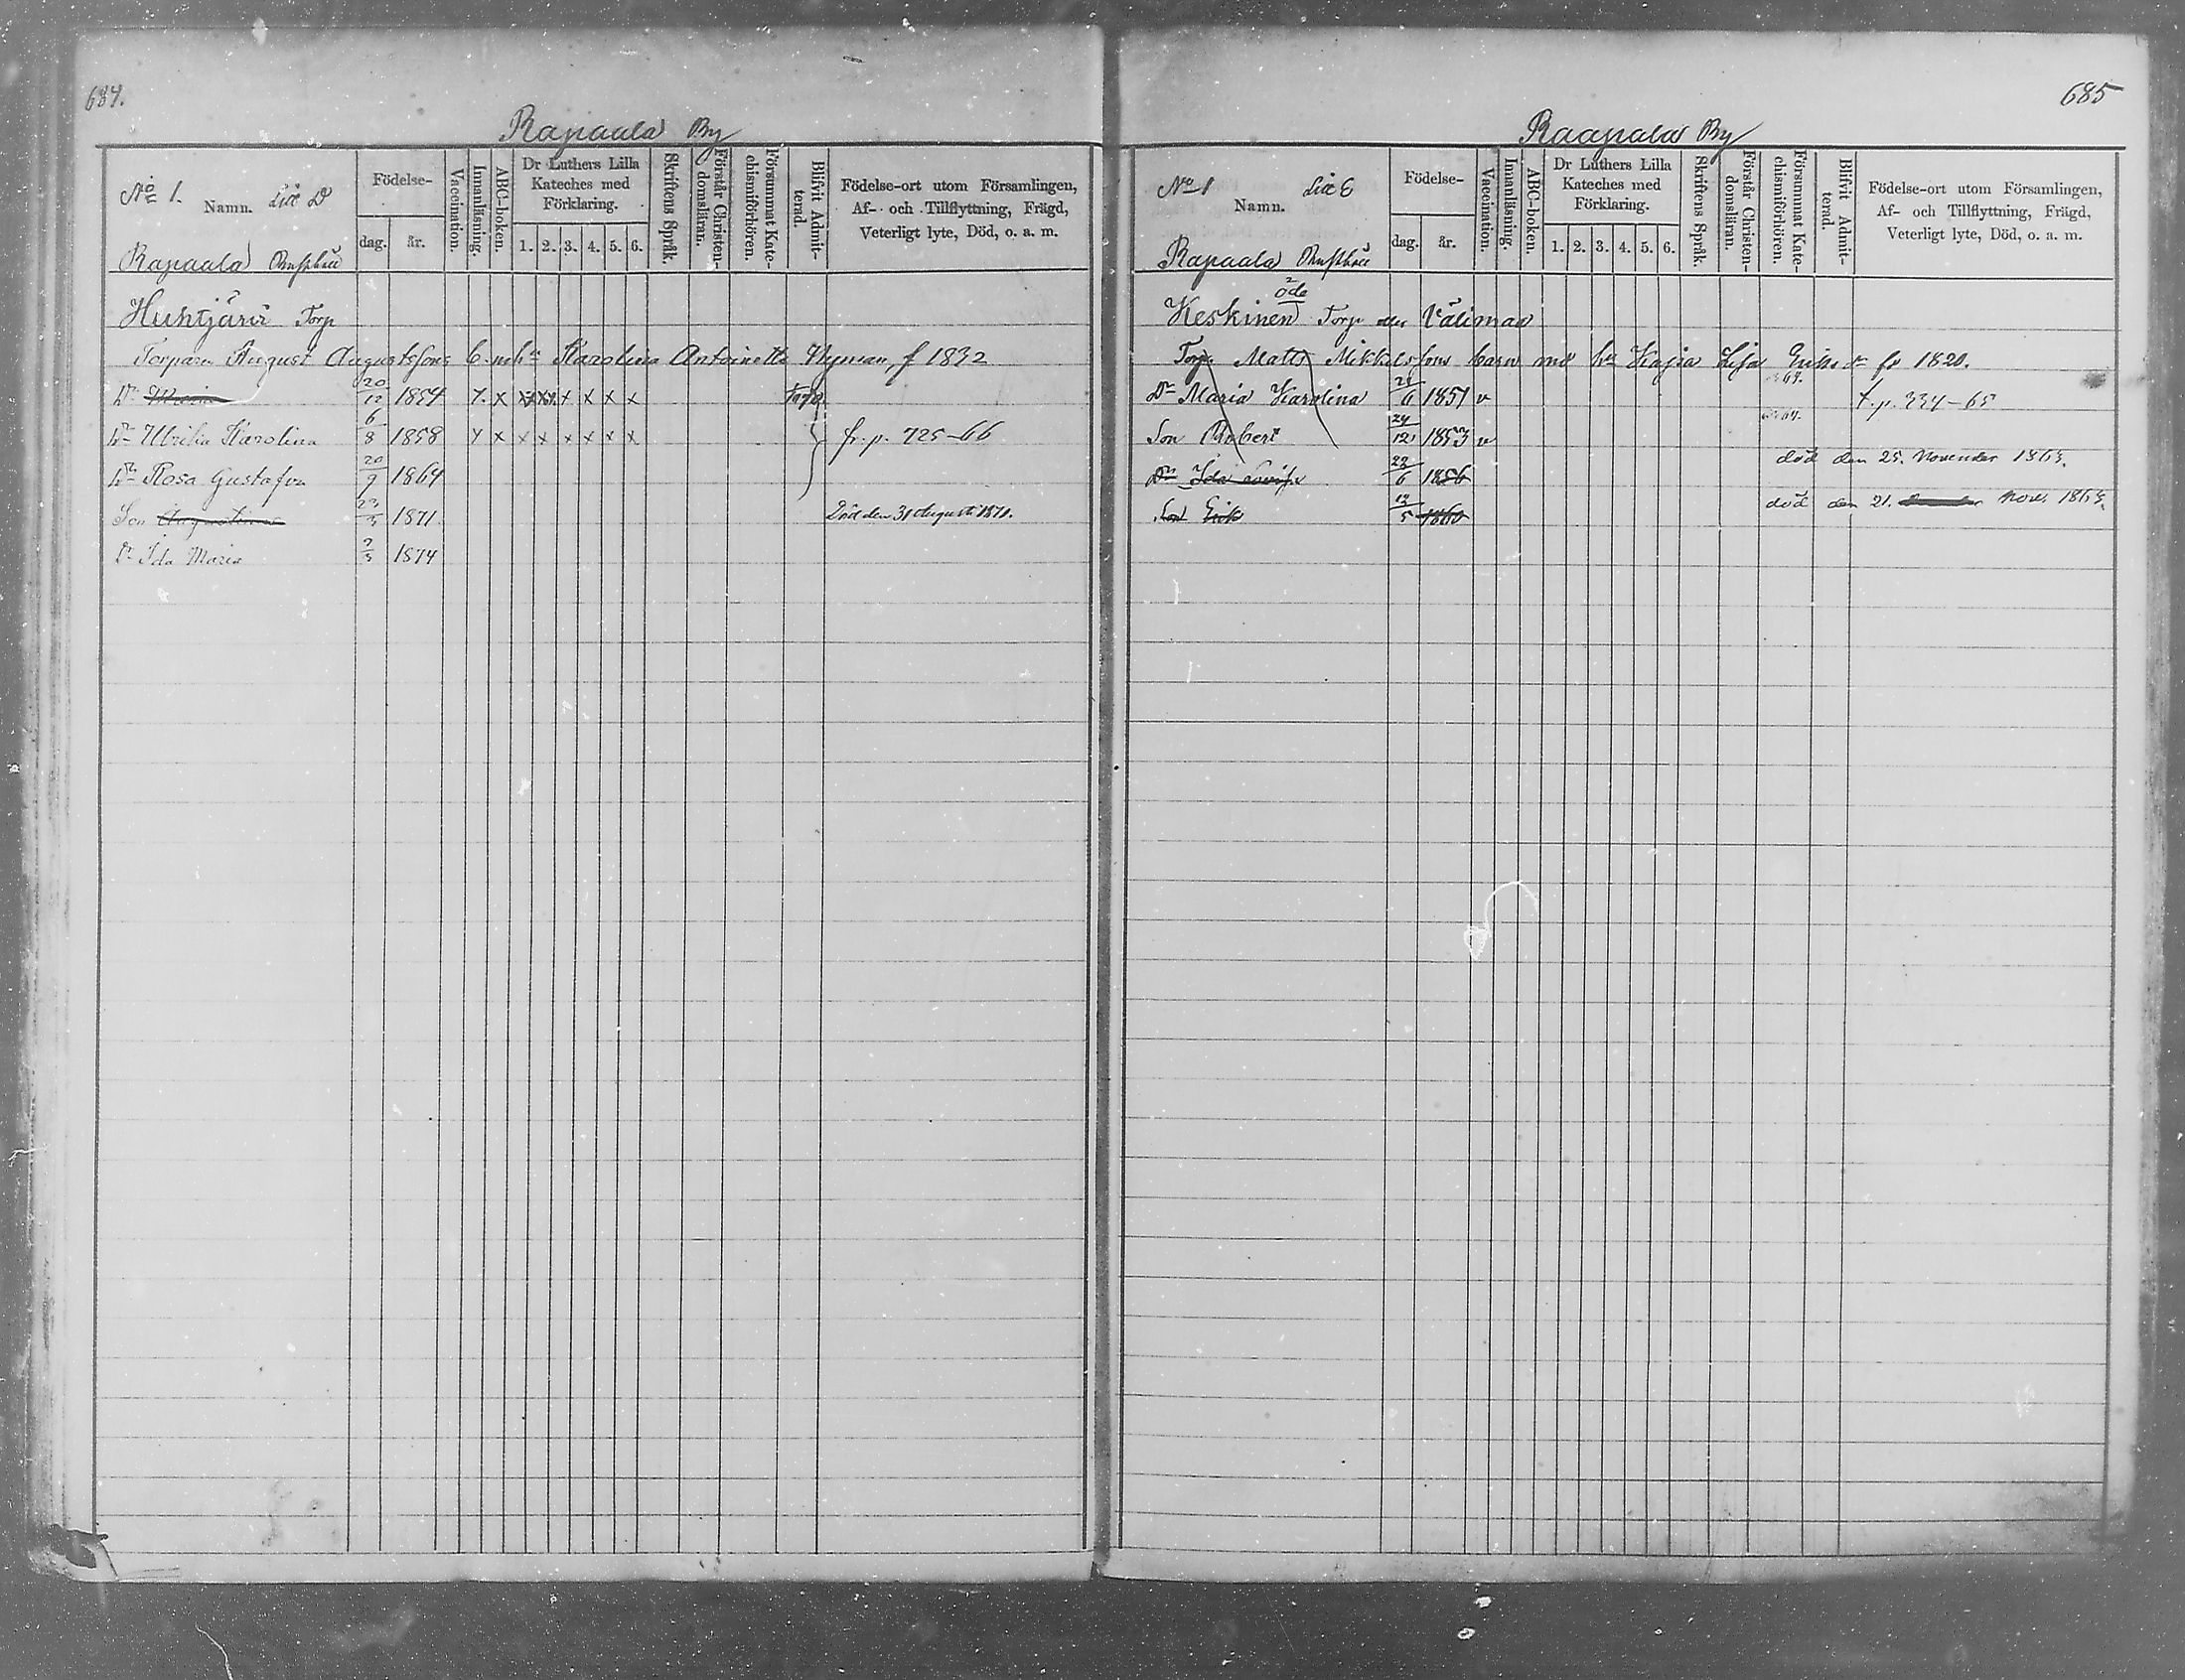 684.
Rapaala By
No 1. Litt D
Namn.
Rapaala
Födelse-
dag. år.
Vaccination.
Innanläsning.
ABC-boken.
Dr Luthers Lilla
Kateches med
Förklaring.
1. 2. 3. 4. 5. 6.
Skriftens Språk.
Förstår Christen-
domsläran.
Försummat Kate-
chismiförhören.
Blifvit Admit-
terad.
Födelse-ort utom Församlingen,
Af- och Tillflyttning, Frägd,
Veterligt lyte, Död, o. a. m.
Huhtjärvi Torp
Torparen August Augustsons b. m hu Karolina Antoinette Nyman, f 1832
Dr 20/12 1854 x x x x x
Dr Ulrika Karolina 6/8 1858 x x x x x x x fr. p. 725-66
Dr Rosa Gustafva 20/9 1864
Son 1871 Död den 31 Augusti 1871.
Dr Ida Maria 1874
685
Raapala By
No 1 Litt E
Namn.
Rapaala
Födelse-
dag. år.
Vaccination.
Innanläsning.
ABC-boken.
Dr Luthers Lilla
Kateches med
Förklaring.
1. 2. 3. 4. 5. 6.
Skriftens Språk.
Förstår Christen-
domsläran.
Försummat Kate-
chismiförhören.
Blifvit Admit-
terad.
Födelse-ort utom Församlingen,
Af- och Tillflyttning, Frägd,
Veterligt lyte, Död, o. a. m.
öde
Keskinen Torp eller Välimaa
Torp. Matts Mikkelssons barn med hu Kajsa Lisa Eriksdr fr 1820.
Dr Maria Karolina 1851 v t. p. 334-65
Son Robert 24/12 1853 v
Dr Ida Lovisa 22/6 1856 död den 25. November 1863.
Son Erik 12/5 1860 död den 21. Nov. 1863.